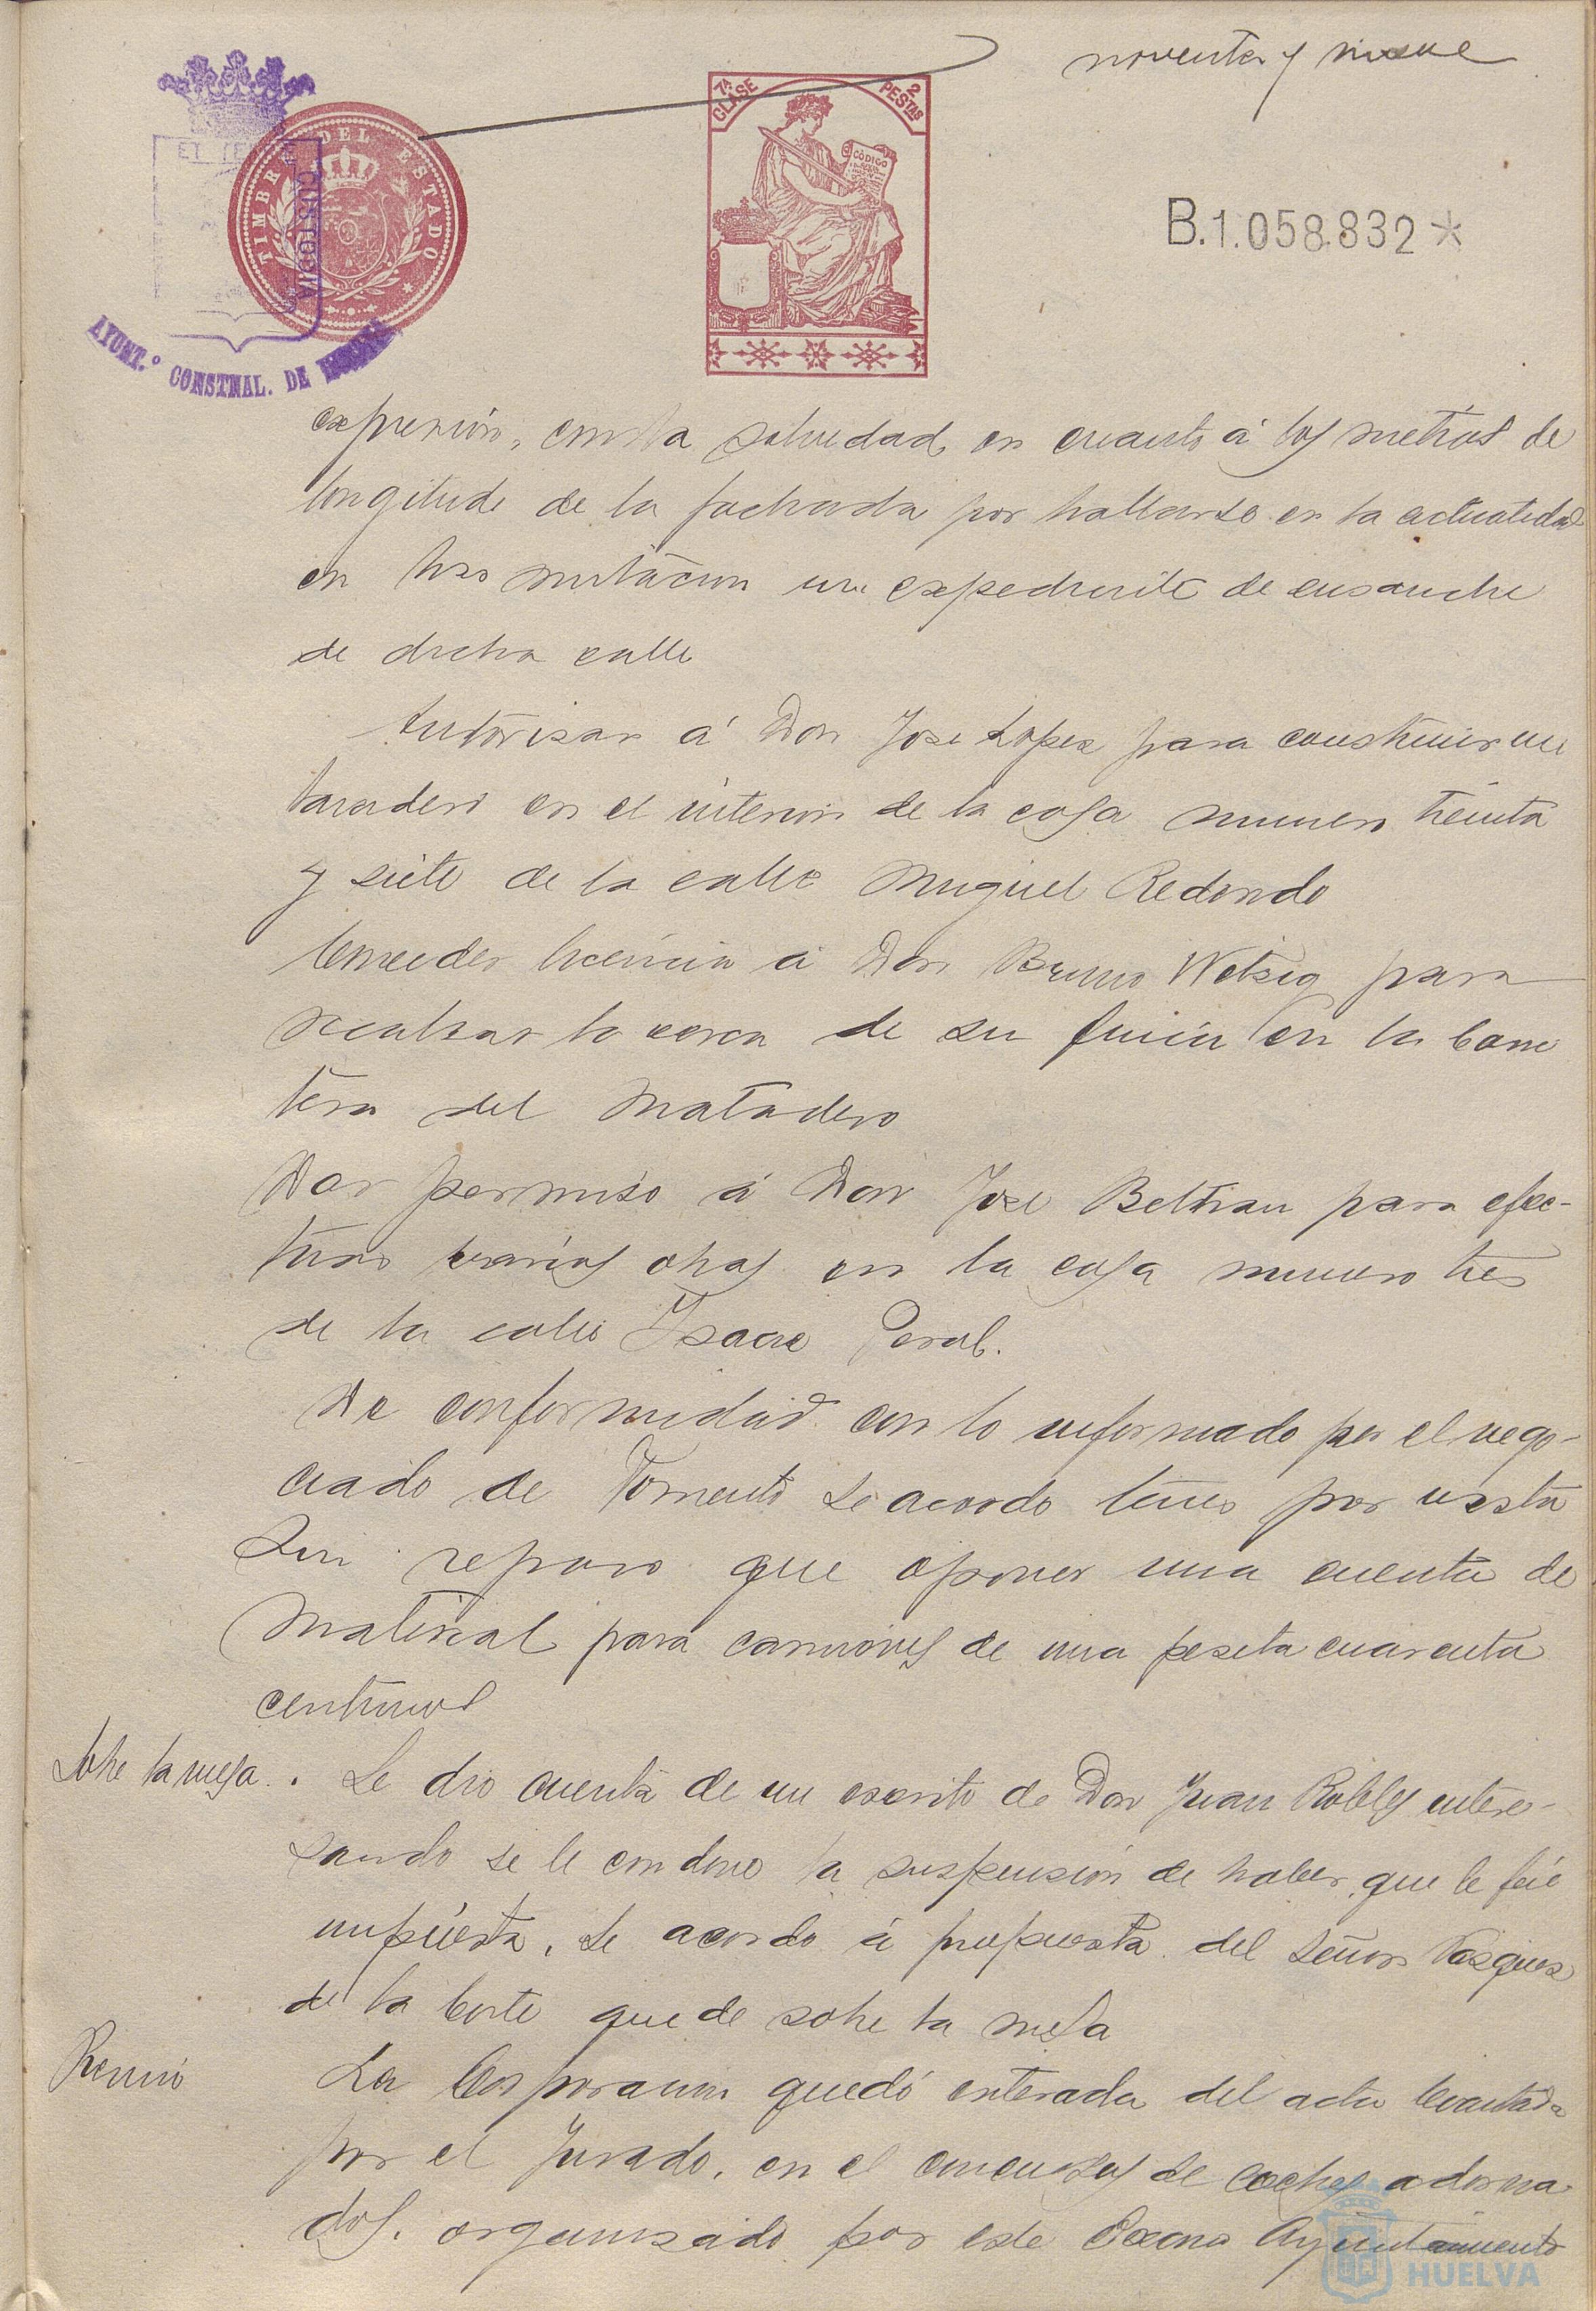 noventa y nueve
TIMBRE DEL ESTADO
CUSTODIA
AYUNT.º CONSTNAL. DE HUELVA
7ª CLASE
2 PESTAS
CÓDIGO
B.1.058.832*
expresión, con la salvedad, en cuanto á los metros de
longitud de la fachada por hallarse en la actualidad
en tramitacion un expediente de ensanche
de dicha calle
Autorisar á Don Jose Lopez para construir un
lavadero en el interior de la casa numero treinta
y siete de la calle Miguel Redondo
Conceder licencia á Don Bruno Wetzig para
realzar la cerca de su finca en la Carre
tera del Matadero
Dar permiso á Don Jose Beltran para efec-
tuar varias obras en la casa numero tres
de la calle Isaac Peral.
De conformidad con lo informado por el nego-
ciado de Fomento se acordo tener por vista
sin reparo que oponer una cuenta de
material para camiones de una peseta cuarenta
centimos
Sobre la mesa. . Se dio cuenta de un escrito de Don Juan Robles intere-
sando se le condone la suspensión de haber, que le fué
impuesta. Se acordo á propuesta del Señor Vasquez
de la Corte quede sobre la mesa
Premio La Corporacion quedó enterada del acta levantada
por el Jurado, en el concurso de coches adorna
dos, organisado por este Excmo Ayuntamiento
HUELVA